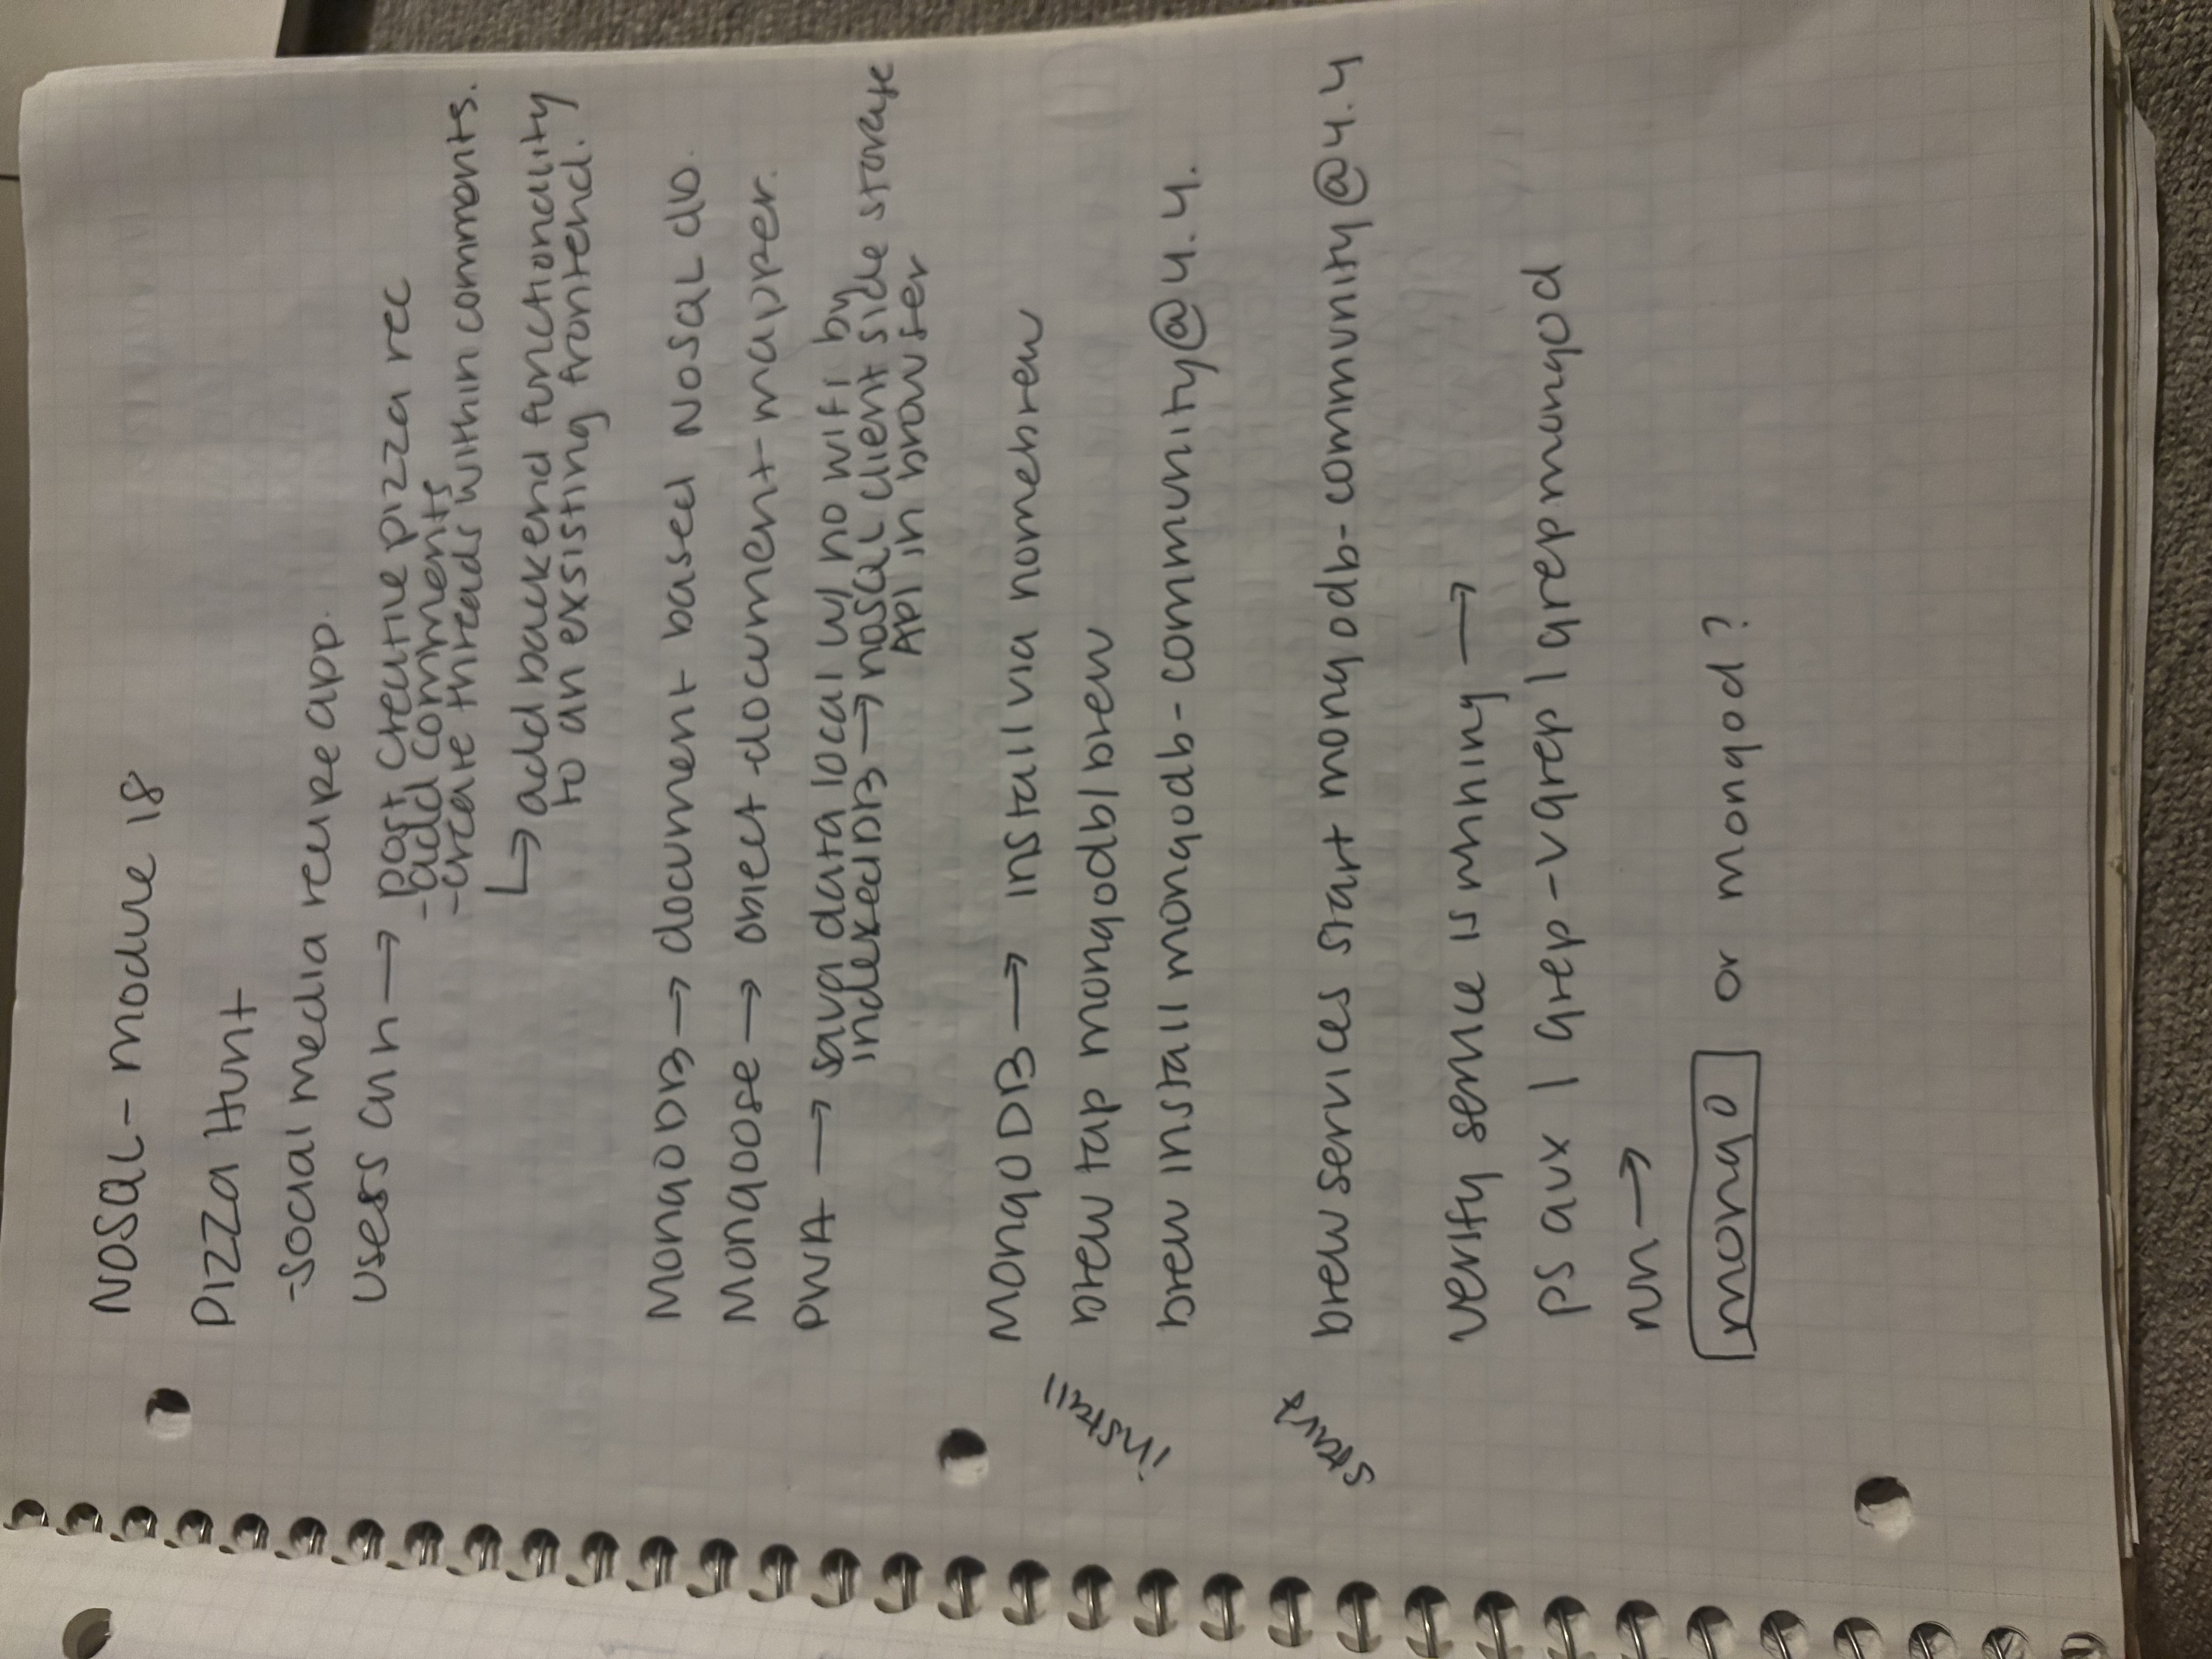 NOSQL - module 18
PIZZA Hunt
-social media recipe app.
Users can → post creative pizza rec
-add comments
-create threads within comments.
↳ add backend functionality
to an exsisting frontend.
MongoDB → document based NoSQL db.
Mongoose → object-document-mapper.
PWA → sava data local w/ no wifi by
indexedDB → noSQL client side storage
API in browser
MongoDB → install via homebrew
install
brew tap mongodb/brew
brew install mongodb-community@4.4.
start
brew services start mongodb-community@4.4
verify service is running →
ps aux | grep -v grep | grep mongod
run →
mongo or mongod?